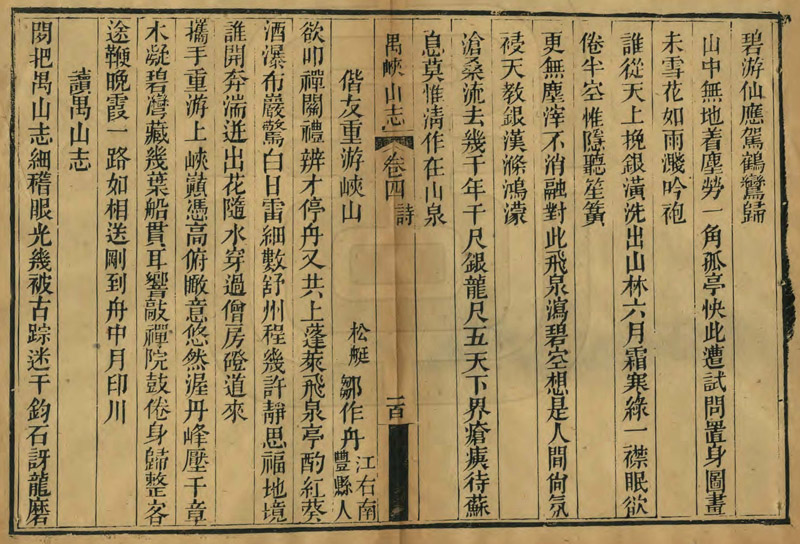 碧游仙應駕鶴鸞歸
山中無地着塵勞一角孤亭快此遭試問置身圖畫
未雪花如雨濺吟袍
誰從天上挽銀潢洗出山林六月霜寒綠一襟眠欲
倦半空惟隱聽笙簧
更無塵滓不消融對此飛泉瀉碧空想是人間尚氛
祲天教銀漢滌鴻濛
滄桑流去幾千年千尺銀龍尺五天下界瘡痍待蘇
息莫惟清作在山泉
禺峽山志 卷四 詩 一百
偕友重游峽山 松艇 鄒作舟 江右南豐縣人
欲叩禪關禮辨才停舟又共上蓬萊飛泉亭酌紅葵
酒瀑布巖驚白日雷細數舒州程幾許靜思福地境
誰開奔湍迸出花隨水穿過僧房磴道來
攜手重游上峽巔憑高俯瞰意悠然渥丹峰壓千章
木凝碧灣藏幾葉船貫耳響敲禪院鼓倦身歸整客
途鞭晚霞一路如相送剛到舟中月印川
讀禺山志
閱把禺山志細稽眼光幾被古踪迷千鈞石訝龍磨